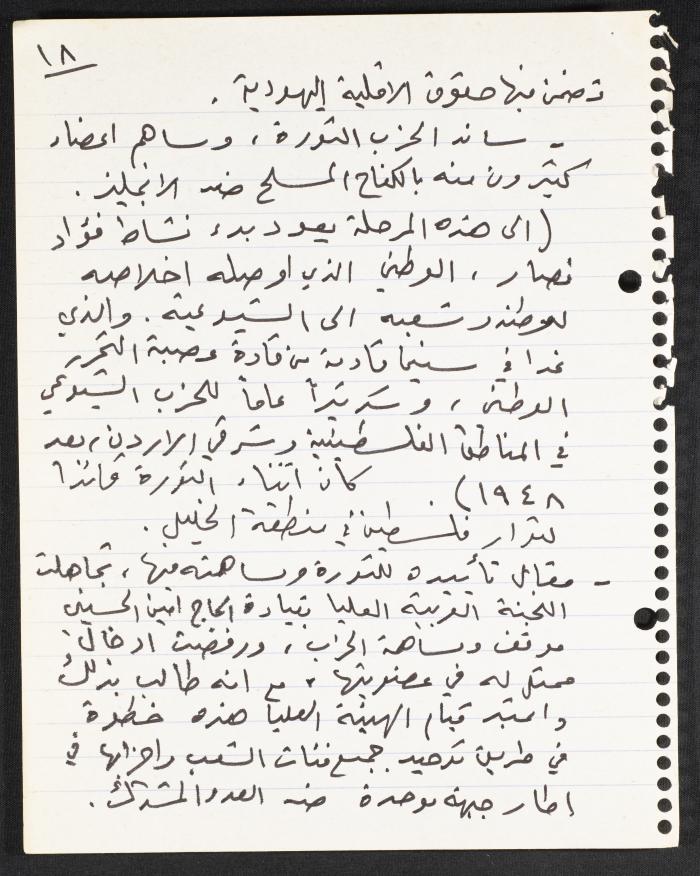 ١٨
تضمن فيها حقوق الاقلية اليهودية .
- ساند الحزب الثورة ، وساهم اعضاء
كثيرون منه بالكفاح المسلح ضد الانجليز .
( الى هذه المرحلة يعود بدء نشاط فؤاد
نصار ، الوطني الذي اوصله اخلاصه
لوطنه وشعبه الى الشيوعية . والذي
غدا في سنين قادمة من قادة عصبة التحرر
الوطني ، وسكرتيراً عاماً للحزب الشيوعي
في المناطق الفلسطينية وشرقي الاردن ، بعد
١٩٤٨ ) . كان اثناء الثورة قائدا
لثوار فلسطين في منطقة الخليل .
- مقابل تأييده للثورة ومساهمته فيها ، تجاهلت
اللجنة العربية العليا بقيادة الحاج امين الحسيني
موقف ومساهمة الحزب ، ورفضت ادخال
ممثل له في عضويتها ، مع انه طالب بذلك
واعتبر قيام الهيئة العليا هذه خطوة
في طريق توحيد جميع فئات الشعب واحزابها في
إطار جبهة موحدة ضد العدو المشترك .